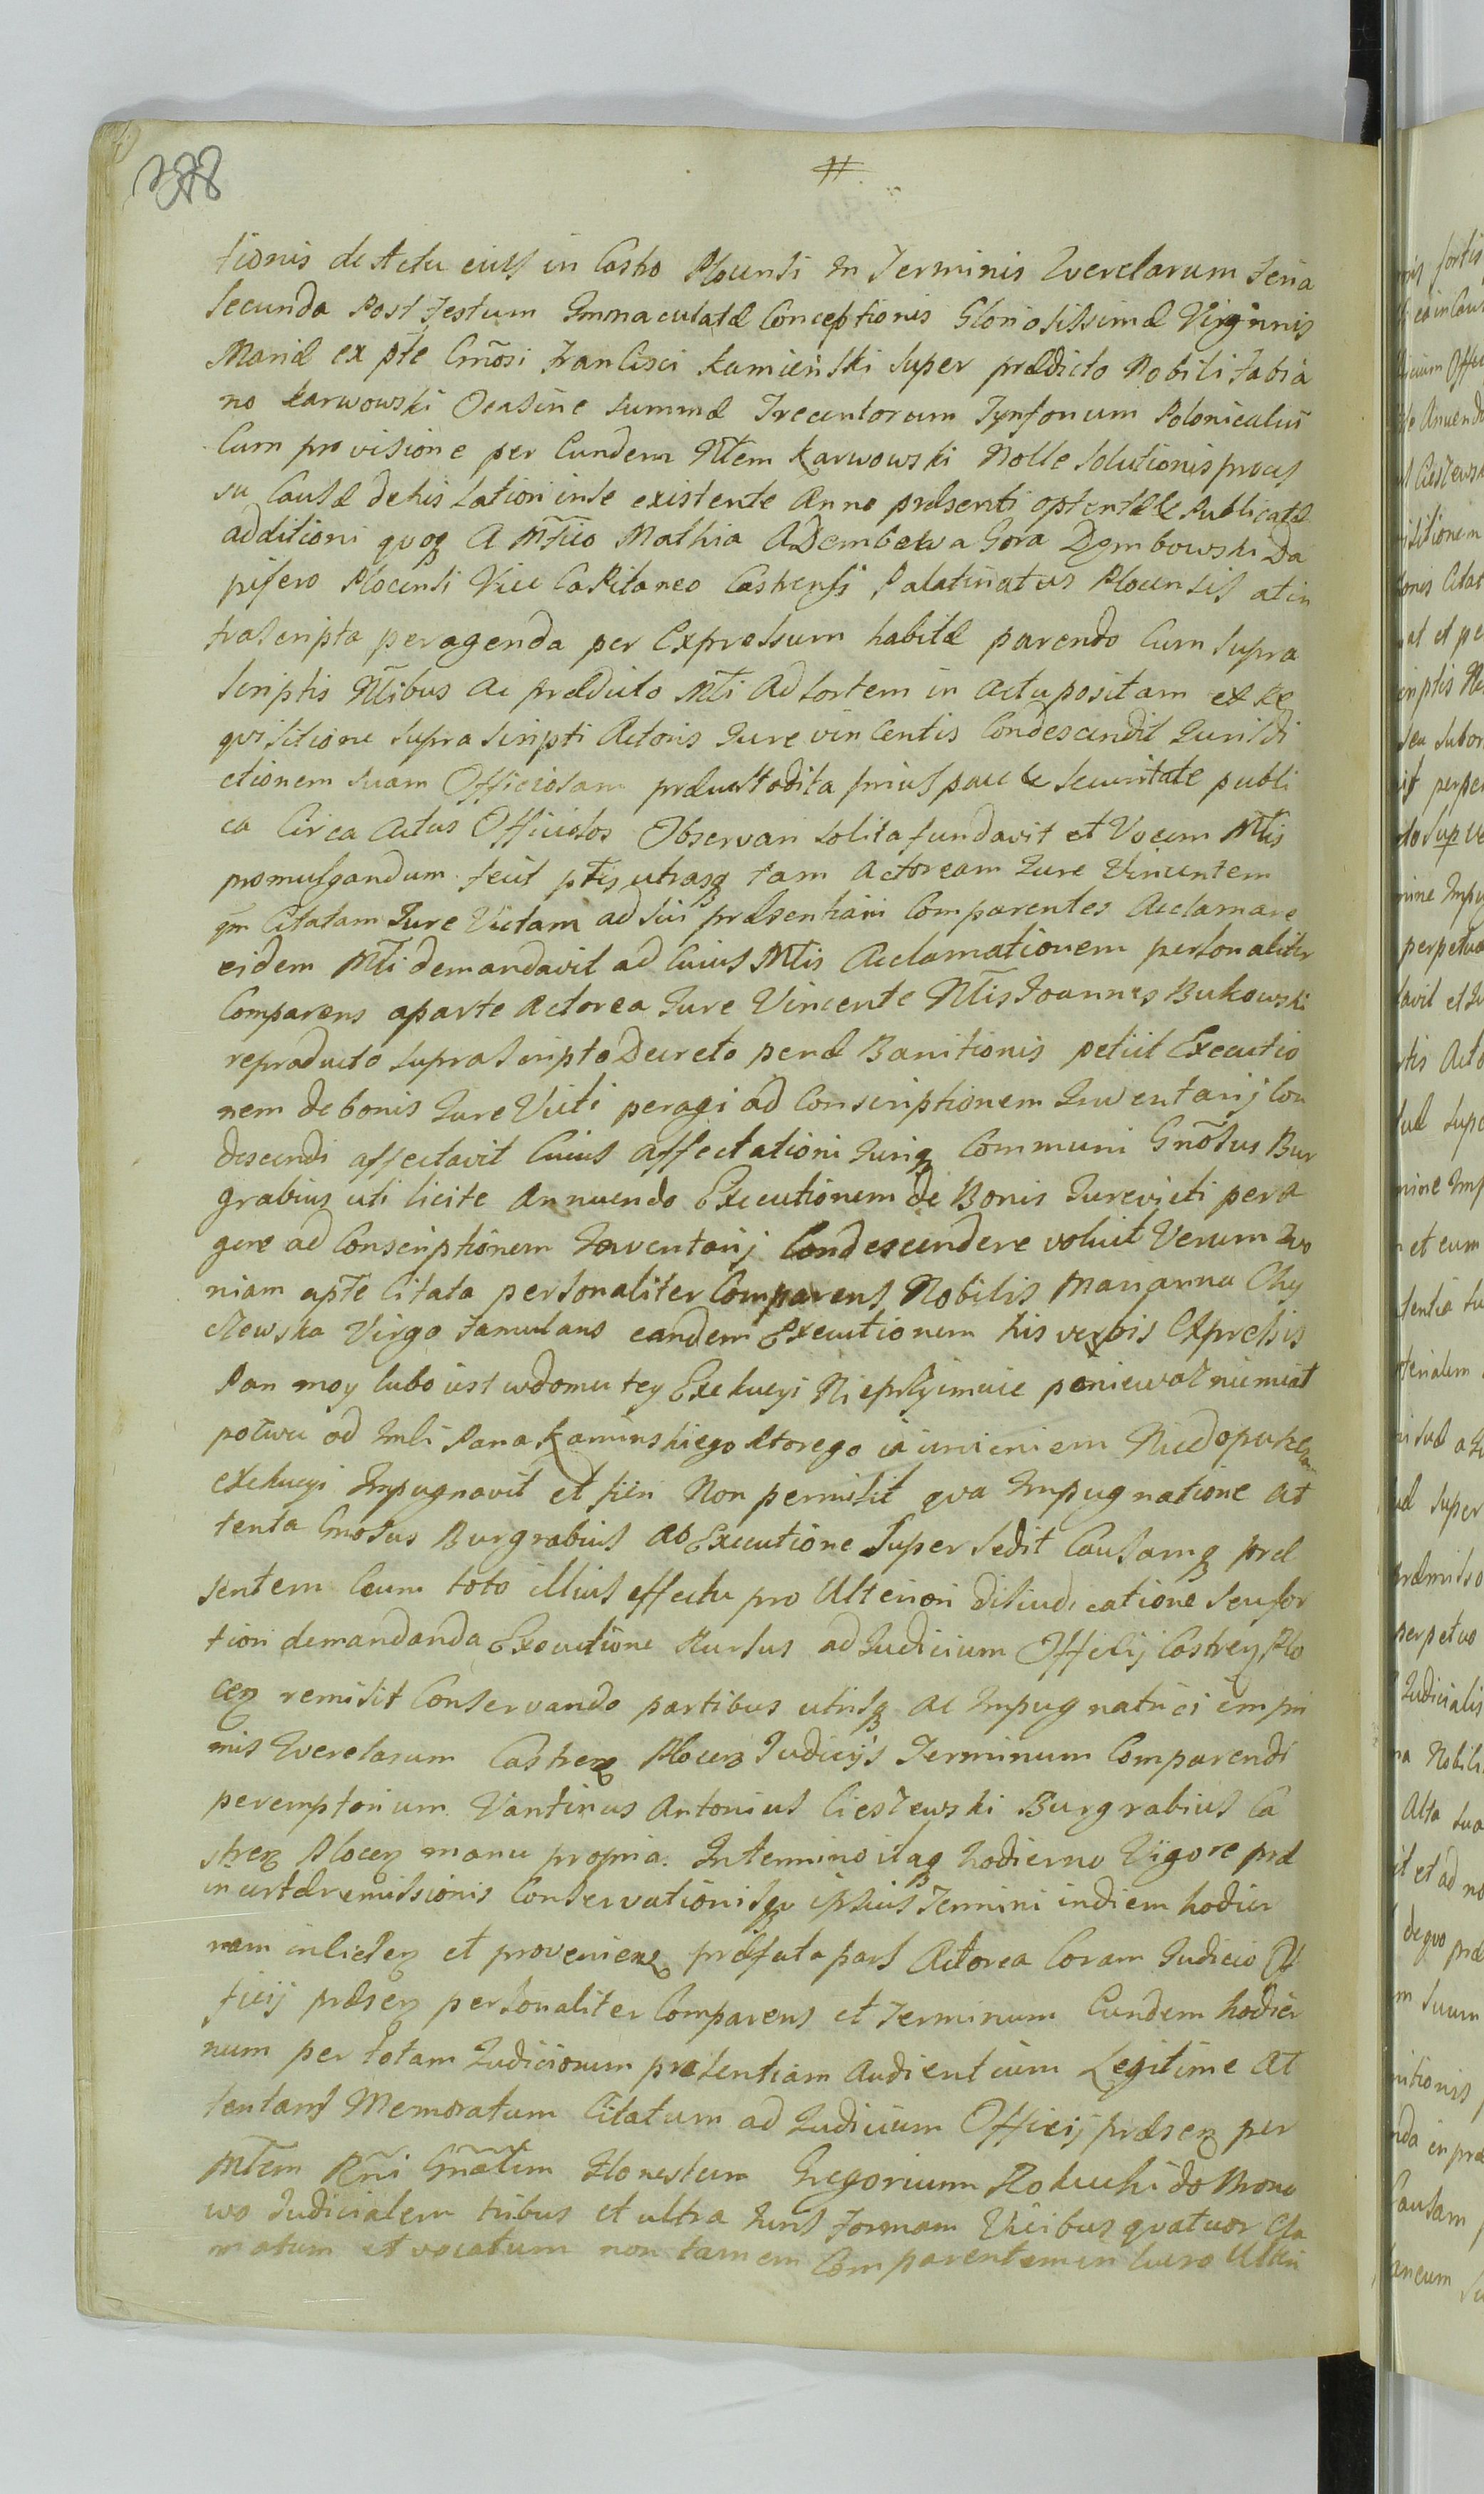 388
#
tionis de Actu eius in Castro Plocensi in Terminis Querelarum feria
secunda Post Festum Immaculatæ Conceptionis Gloriosissimæ Virginis
Mariæ ex pte Gnosi Francisci Kamieński super prædicto Nobili Fabia
no Karwowski Occasine summæ Trecentorum Tynfonum Polonicaliu
Cum provisione per Eundem Nltem Karwowski Nolle solutionis proces
su Causæ de his latiori inse existente Anno præsenti optentæ & publicatæ
additioni quoq A Mfico Mathia A Dembowa Gora Dembowski Da
pifero Plocensi Vice Capitaneo Castrensi Palatinatus Plocensis at in
frascripta peragenda per Expressum habitæ parendo Cum supra
scriptis Nltibus Ac prædicto Mlti Ad sortem in actu positam ex Re
qvisitione supra scripti Actoris Jure vincentis Condescendit Jurisdi
ctionem suam Officiosam præcustodita prius pace & securitate publi
ca Circa Actus Officiosos Observari solita fundavit et Vocem Mltis
promulgandum fecit ptes utrasq tam Actoream Jure Vincentem
qm Citatam Jure Victam ad sui præsentiam Comparentes Acclamare
eidem Mlti demandavit ad Cuius Mltis Acclamationem personaliter
Comparens aparte Actorea Jure Vincente Nltis Joannes Bukowski
reproducto suprascripto Decreto penæ Banitionis petiit Executio
nem de bonis Jure Victi peragi ad Conscriptionem Inventarij Con
descendi affectavit Cuius Affectationi Juriq Communi Gnosus Bur
grabius uti licite Annuendo Executionem de Bonis Jurevicti pera
gere ad Conscriptionem Inventarij Condescendere voluit Verum Quo
niam apte Citata personaliter Comparens Nobilis Marianna Chy
czewska Virgo Famulans eandem Executionem his verbis Expressis
Pan moy lubo iest wdomu tey Exekucyi Nieprzyimuie poniewaz niemiał
potwu od Imsi Pana Kaminskiego ktorego ia imieniem Niedopuszczam
exekucyi Impugnavit et fieri Non permisit qva Impugnatione at
tenta Gnosus Burgrabius ab Executione supersedit Causamq præ
sentem Cum toto illius effectu pro Ulteriori disiudicatione seu for
tiori demandanda Executione Rursus ad Judicium Officij Castren Plo
cen remisit Conservando partibus utrisq ac Impugnatrici in pri
mis Querelarum Castren Plocen Judicijs Terminum Comparendi
peremptorium Vantinus Antonius Cieszewski Burgrabius Ca
stren Plocen manu propria. Intermino itaq hodierno Vigore præ
insertæ remissionis Conservationisq ipsius Termini indiem hodier
nam inciden et provenien præfata pars Actorea Coram Judicio Of
ficij præsen personaliter Comparens et Terminum Eundem hodier
num per totam Judiciorum præsentiam Audientium Legitime At
tentans Memoratum Citatum ad Judicium Officij præsen per
Mltem Rni Gnalem Honestum Gregorium Rokucki do Mono
wo Judicialem tribus et ultra Juris Formam Vicibus quatuor Cla
matum et vocatum non tamen Comparentem in lucro Ulteri